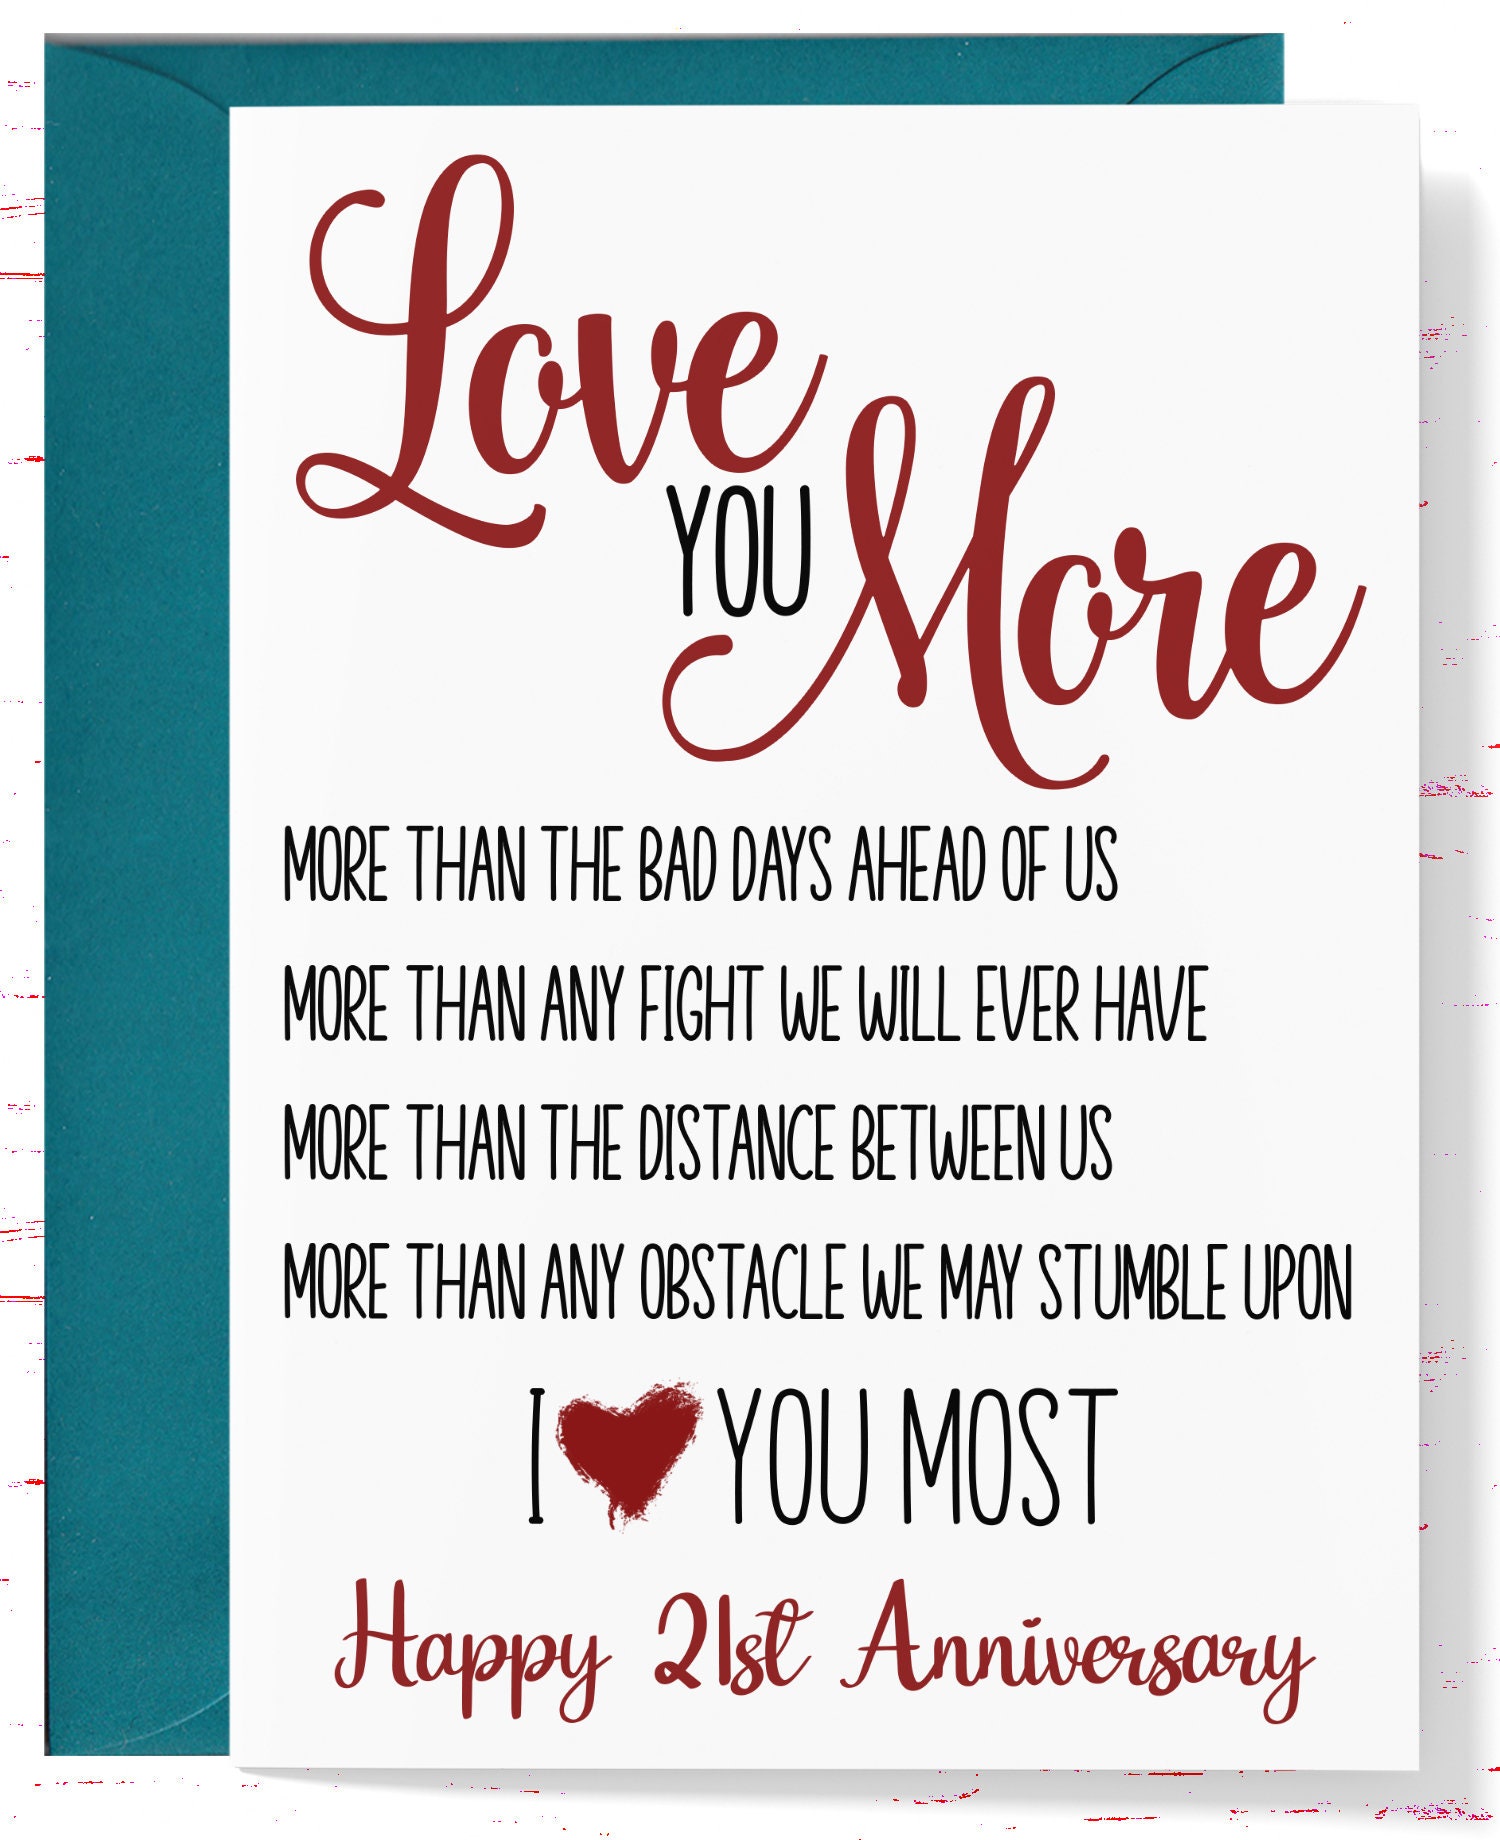 Love
YOU
More
MORE THAN THE BAD DAYS AHEAD OF US
MORE THAN ANY FIGHT WE WILL EVER HAVE
MORE THAN THE DISTANCE BETWEEN US
MORE THAN ANY OBSTACLE WE MAY STUMBLE UPON
I ❤ YOU MOST
Happy 21st Anniversary